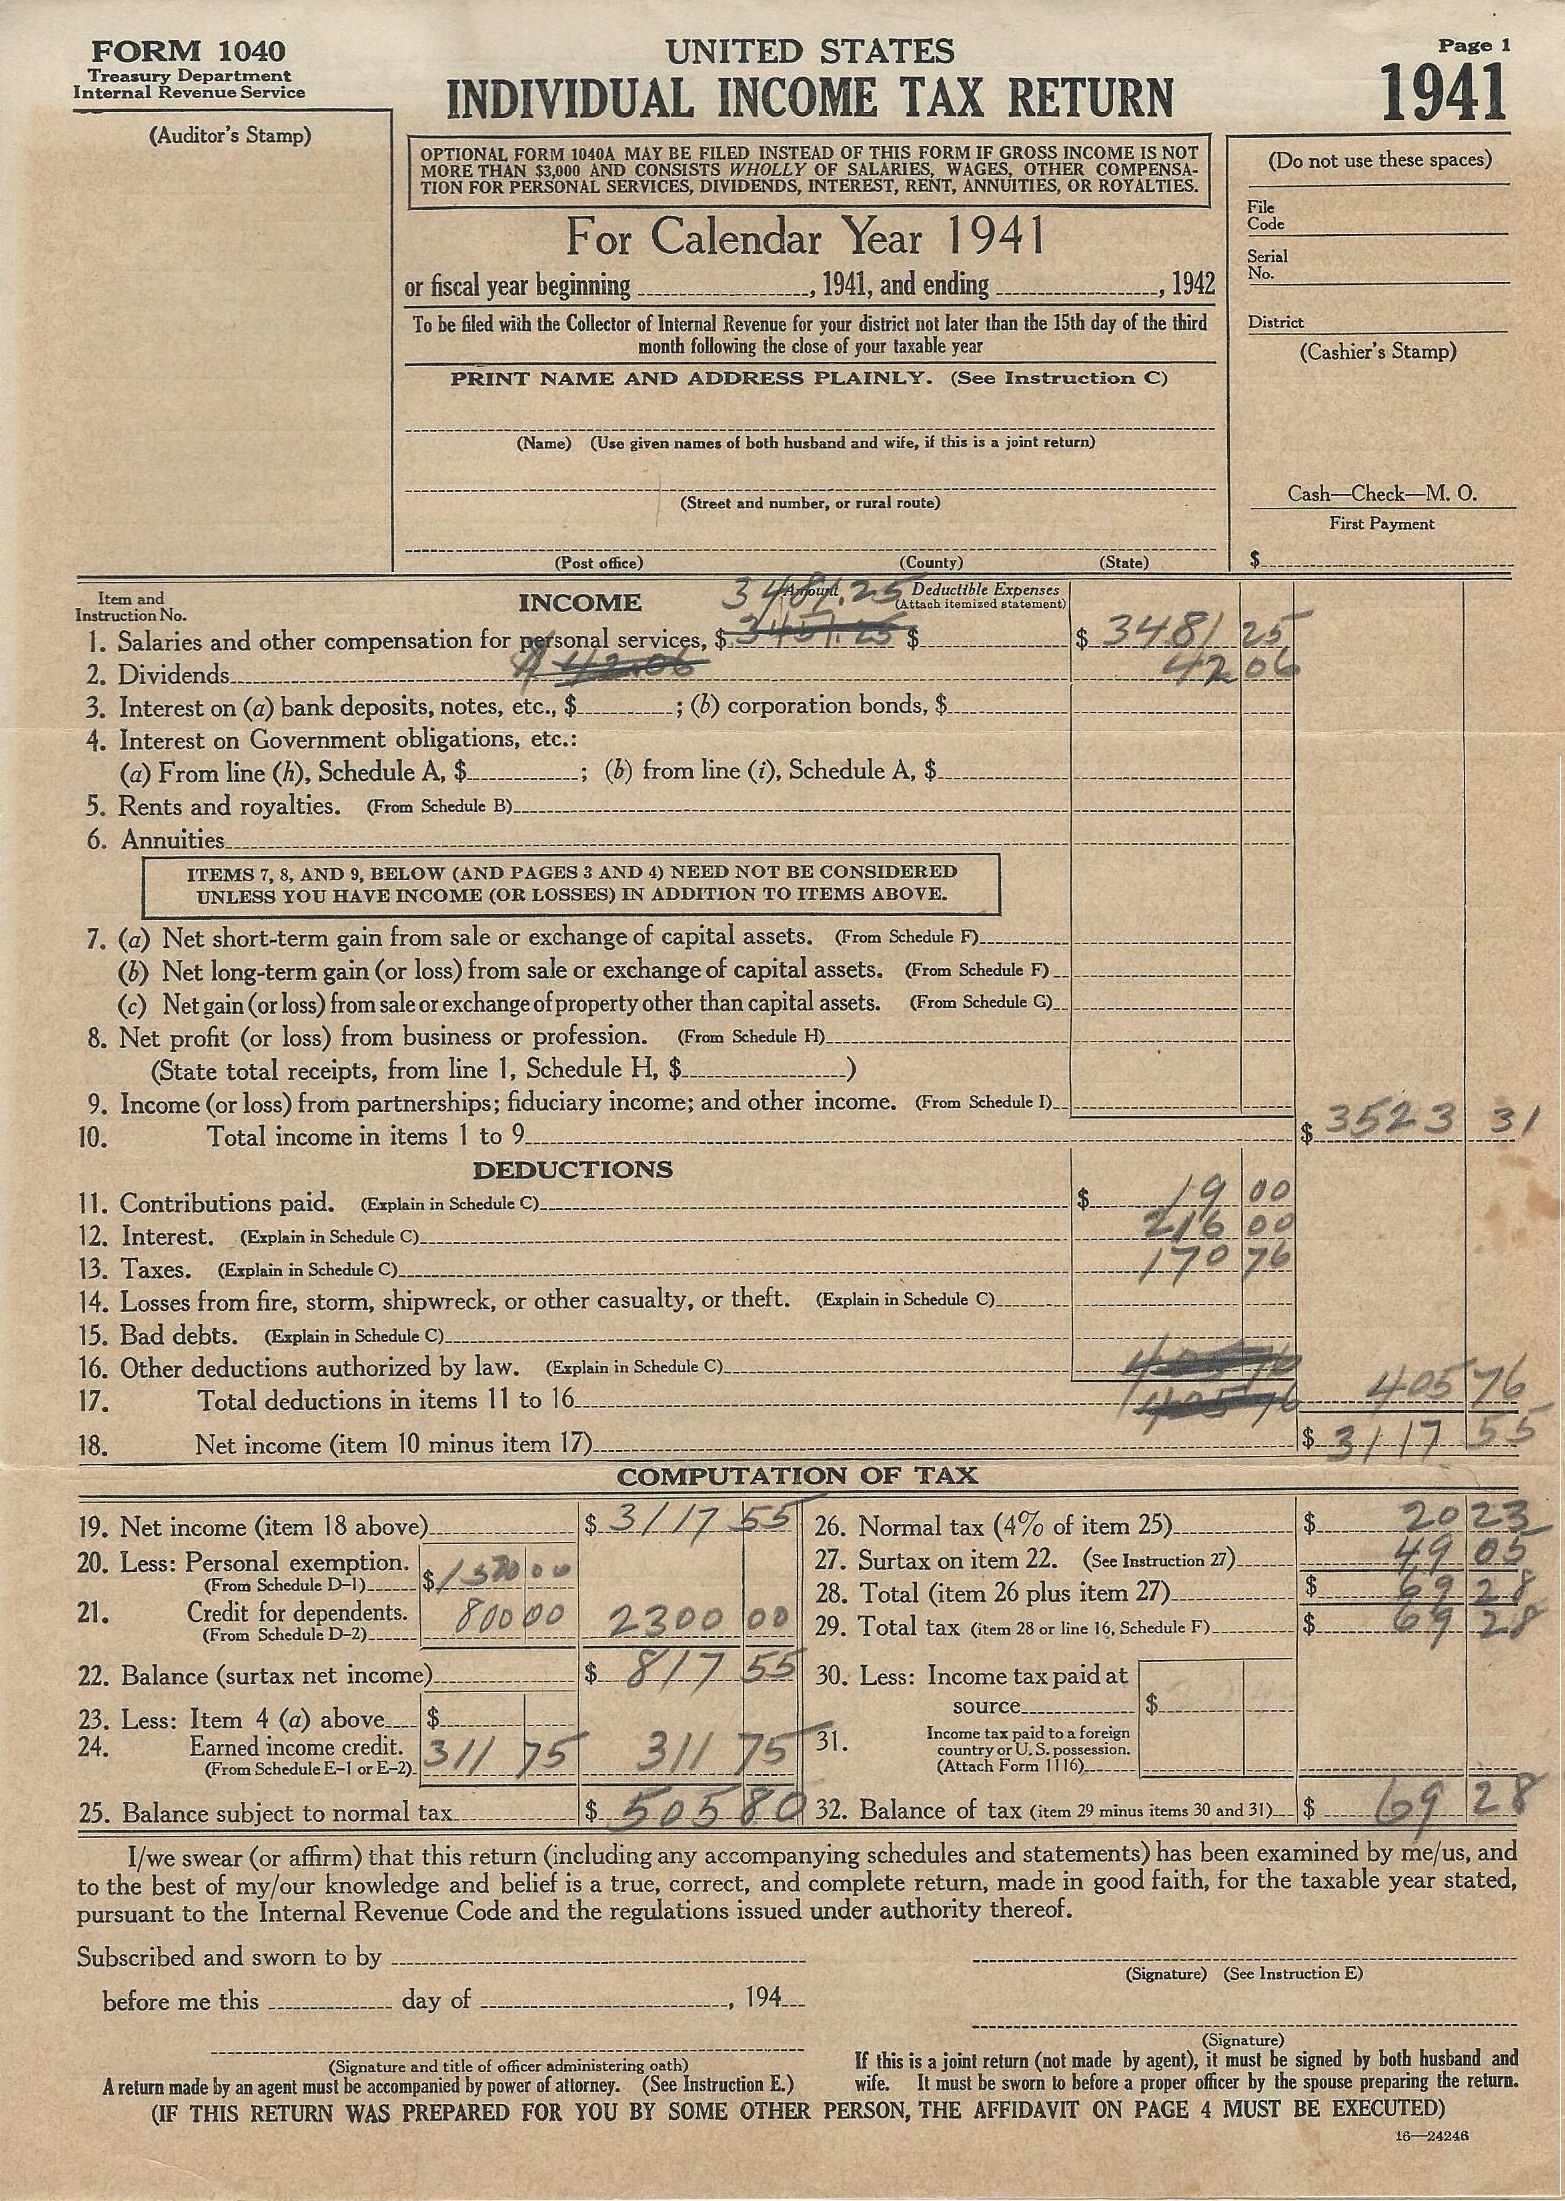 FORM 1040
Treasury Department
Internal Revenue Service
(Auditor's Stamp)
UNITED STATES
INDIVIDUAL INCOME TAX RETURN
Page 1
1941
OPTIONAL FORM 1040A MAY BE FILED INSTEAD OF THIS FORM IF GROSS INCOME IS NOT
MORE THAN $3,000 AND CONSISTS WHOLLY OF SALARIES, WAGES, OTHER COMPENSA-
TION FOR PERSONAL SERVICES, DIVIDENDS, INTEREST, RENT, ANNUITIES, OR ROYALTIES.
For Calendar Year 1941
or fiscal year beginning , 1941, and ending , 1942
To be filed with the Collector of Internal Revenue for your district not later than the 15th day of the third
month following the close of your taxable year
PRINT NAME AND ADDRESS PLAINLY. (See Instruction C)
(Name) (Use given names of both husband and wife, if this is a joint return)
(Street and number, or rural route)
(Post office) (County) (State)
(Do not use these spaces)
File
Code
Serial
No.
District
(Cashier's Stamp)
Cash—Check—M. O.
First Payment
$
Item and
Instruction No.
INCOME
3481.25 Amount
Deductible Expenses
(Attach itemized statement)
1. Salaries and other compensation for personal services, $ 3451.25 $ $ 3481 25
2. Dividends $ 42.06 42 06
3. Interest on (a) bank deposits, notes, etc., $ ; (b) corporation bonds, $
4. Interest on Government obligations, etc.:
(a) From line (h), Schedule A, $ ; (b) from line (i), Schedule A, $
5. Rents and royalties. (From Schedule B)
6. Annuities
ITEMS 7, 8, AND 9, BELOW (AND PAGES 3 AND 4) NEED NOT BE CONSIDERED
UNLESS YOU HAVE INCOME (OR LOSSES) IN ADDITION TO ITEMS ABOVE.
7. (a) Net short-term gain from sale or exchange of capital assets. (From Schedule F)
(b) Net long-term gain (or loss) from sale or exchange of capital assets. (From Schedule F)
(c) Net gain (or loss) from sale or exchange of property other than capital assets. (From Schedule G)
8. Net profit (or loss) from business or profession. (From Schedule H)
(State total receipts, from line 1, Schedule H, $ )
9. Income (or loss) from partnerships; fiduciary income; and other income. (From Schedule I)
10. Total income in items 1 to 9 $ 3523 31
DEDUCTIONS
11. Contributions paid. (Explain in Schedule C) $ 19 00
12. Interest. (Explain in Schedule C) 216 00
13. Taxes. (Explain in Schedule C) 170 76
14. Losses from fire, storm, shipwreck, or other casualty, or theft. (Explain in Schedule C)
15. Bad debts. (Explain in Schedule C)
16. Other deductions authorized by law. (Explain in Schedule C) 405 76
17. Total deductions in items 11 to 16 405 76 405 76
18. Net income (item 10 minus item 17) $ 3117 55
COMPUTATION OF TAX
19. Net income (item 18 above) $ 3117 55
20. Less: Personal exemption.
(From Schedule D-1) $ 1500 00
21. Credit for dependents.
(From Schedule D-2) 800 00 2300 00
22. Balance (surtax net income) $ 817 55
23. Less: Item 4 (a) above $
24. Earned income credit.
(From Schedule E-1 or E-2) 311 75 311 75
25. Balance subject to normal tax $ 505 80
26. Normal tax (4% of item 25) $ 20 23
27. Surtax on item 22. (See Instruction 27) 49 05
28. Total (item 26 plus item 27) $ 69 28
29. Total tax (item 28 or line 16, Schedule F) $ 69 28
30. Less: Income tax paid at
source $
31. Income tax paid to a foreign
country or U. S. possession.
(Attach Form 1116)
32. Balance of tax (item 29 minus items 30 and 31) $ 69 28
I/we swear (or affirm) that this return (including any accompanying schedules and statements) has been examined by me/us, and
to the best of my/our knowledge and belief is a true, correct, and complete return, made in good faith, for the taxable year stated,
pursuant to the Internal Revenue Code and the regulations issued under authority thereof.
Subscribed and sworn to by
before me this day of , 194
(Signature and title of officer administering oath)
A return made by an agent must be accompanied by power of attorney. (See Instruction E.)
(Signature) (See Instruction E)
(Signature)
If this is a joint return (not made by agent), it must be signed by both husband and
wife. It must be sworn to before a proper officer by the spouse preparing the return.
(IF THIS RETURN WAS PREPARED FOR YOU BY SOME OTHER PERSON, THE AFFIDAVIT ON PAGE 4 MUST BE EXECUTED)
16—24246